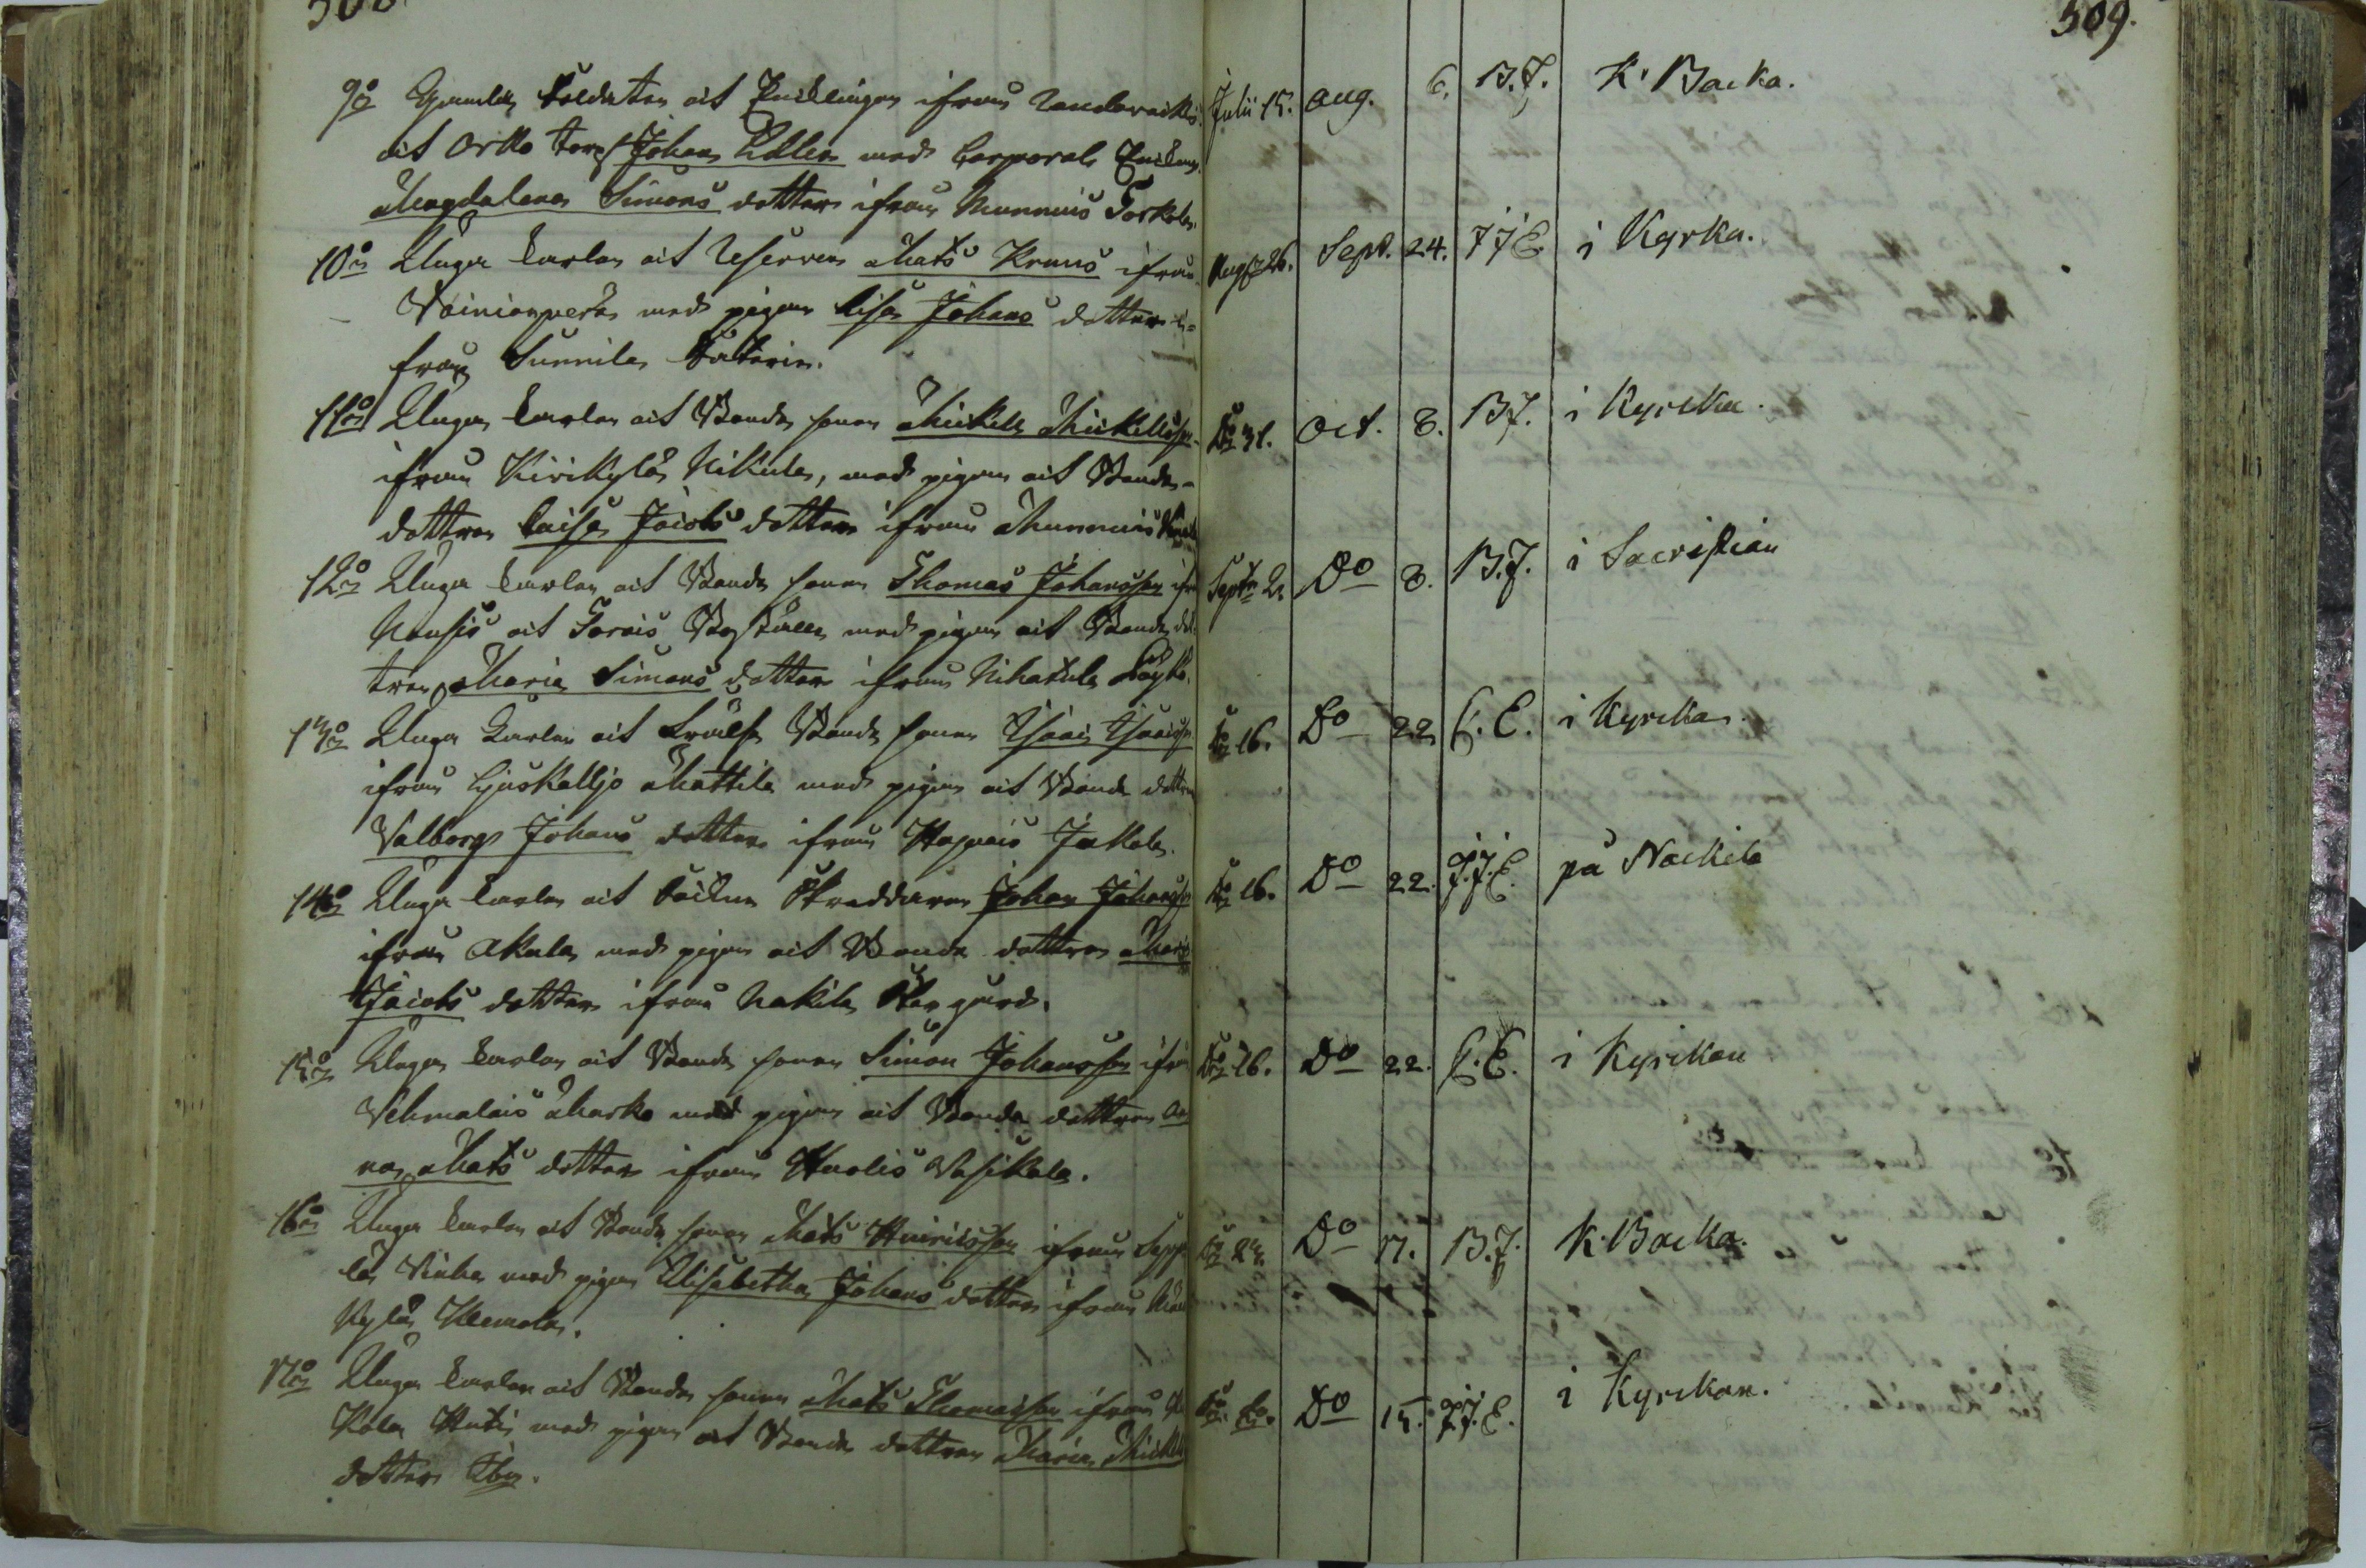 508
509.
9o Gamla Soldaten och Enklingen ifrån
och Orko torp Johan Edlen med Corporals Enkan
Magdalena Simons dotter ifrån Munnuis Torkola.
Julii 15. Aug. 6. B.J. K. Backa.
10o Unga karlen och Reserven Mats Kruus ifrån
Wainionperä med pigan Lisa Johans dotter i-
från Sunnila Säterie.
Aug. 26. Sept. 24. J.J.E. i Kyrka.
11o Unga karlen och Bonde sonen Mickell Mickellsson
ifrån Kirikylä Nikula, med pigan och Bonde-
dottren Caisa Jacobs dotter ifrån Munnuis
Do 31. Oct. 8. B.J. i Kyrcka.
12o Unga karlen och Bonde sonen Thomas Johansson ifrån
Nousis och Torois Boställe med pigan och Bonde dot-
tren Maria Simons dotter ifrån Nihatula
Sept. 2. Do 8. B.J. i Sacristian
13o Unga Karlen och Frälse Bonde sonen Isaac Isacsson
ifrån Ljuskalljo Mattila med pigan och Bonde dottren
Walborg Johans dotter ifrån Hapnais Jakola.
Do 16. Do 22 C.E. i Kyrckan.
14o Unga karlen och Sockne Skreddaren Johan Johansson
ifrån Akala med pigan och Bonde dottren Maria
Jacobs dotter ifrån Nakila Stor gård.
Do 16. Do 22. J.J.E. på Nackila
15o Unga karlen och Bonde sonen Simon Johansson ifrån
Vehmalais Marko med pigan och Bonde dottren An
na Mats dotter ifrån Haolis Vasikala.
Do 16. Do 22. C.E. i Kyrckan
16o Unga karlen och Bonde sonen Mats Hinricsson ifrån Seppä
lä Vinha med pigan Elisabetha Johans dotter ifrån
Kylä Klemola.
Do 23. Do 17. B.J. K. Backa.
17o Unga karlen och Bonde sonen Mats Thomasson ifrån
Kola Huti med pigan och Bonde dottren Maria Mickels
dotter Ibm.
Do Do. Do 15. J.J.E. i Kyrckan.